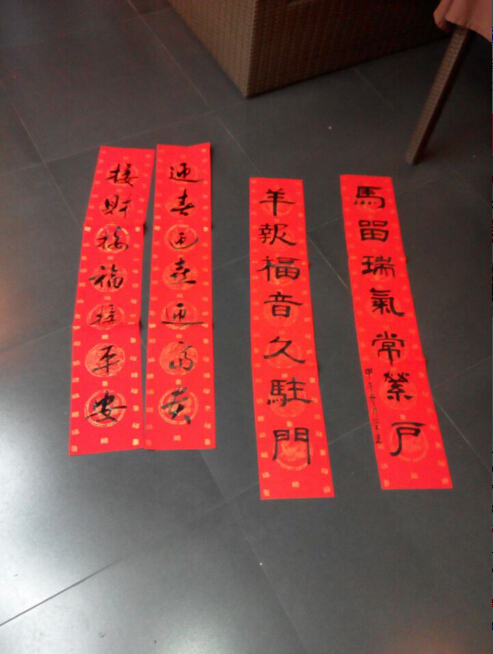 馬留瑞氣常縈戶
羊報福音久駐門
迎春迎喜迎富贵
接财接福接平安